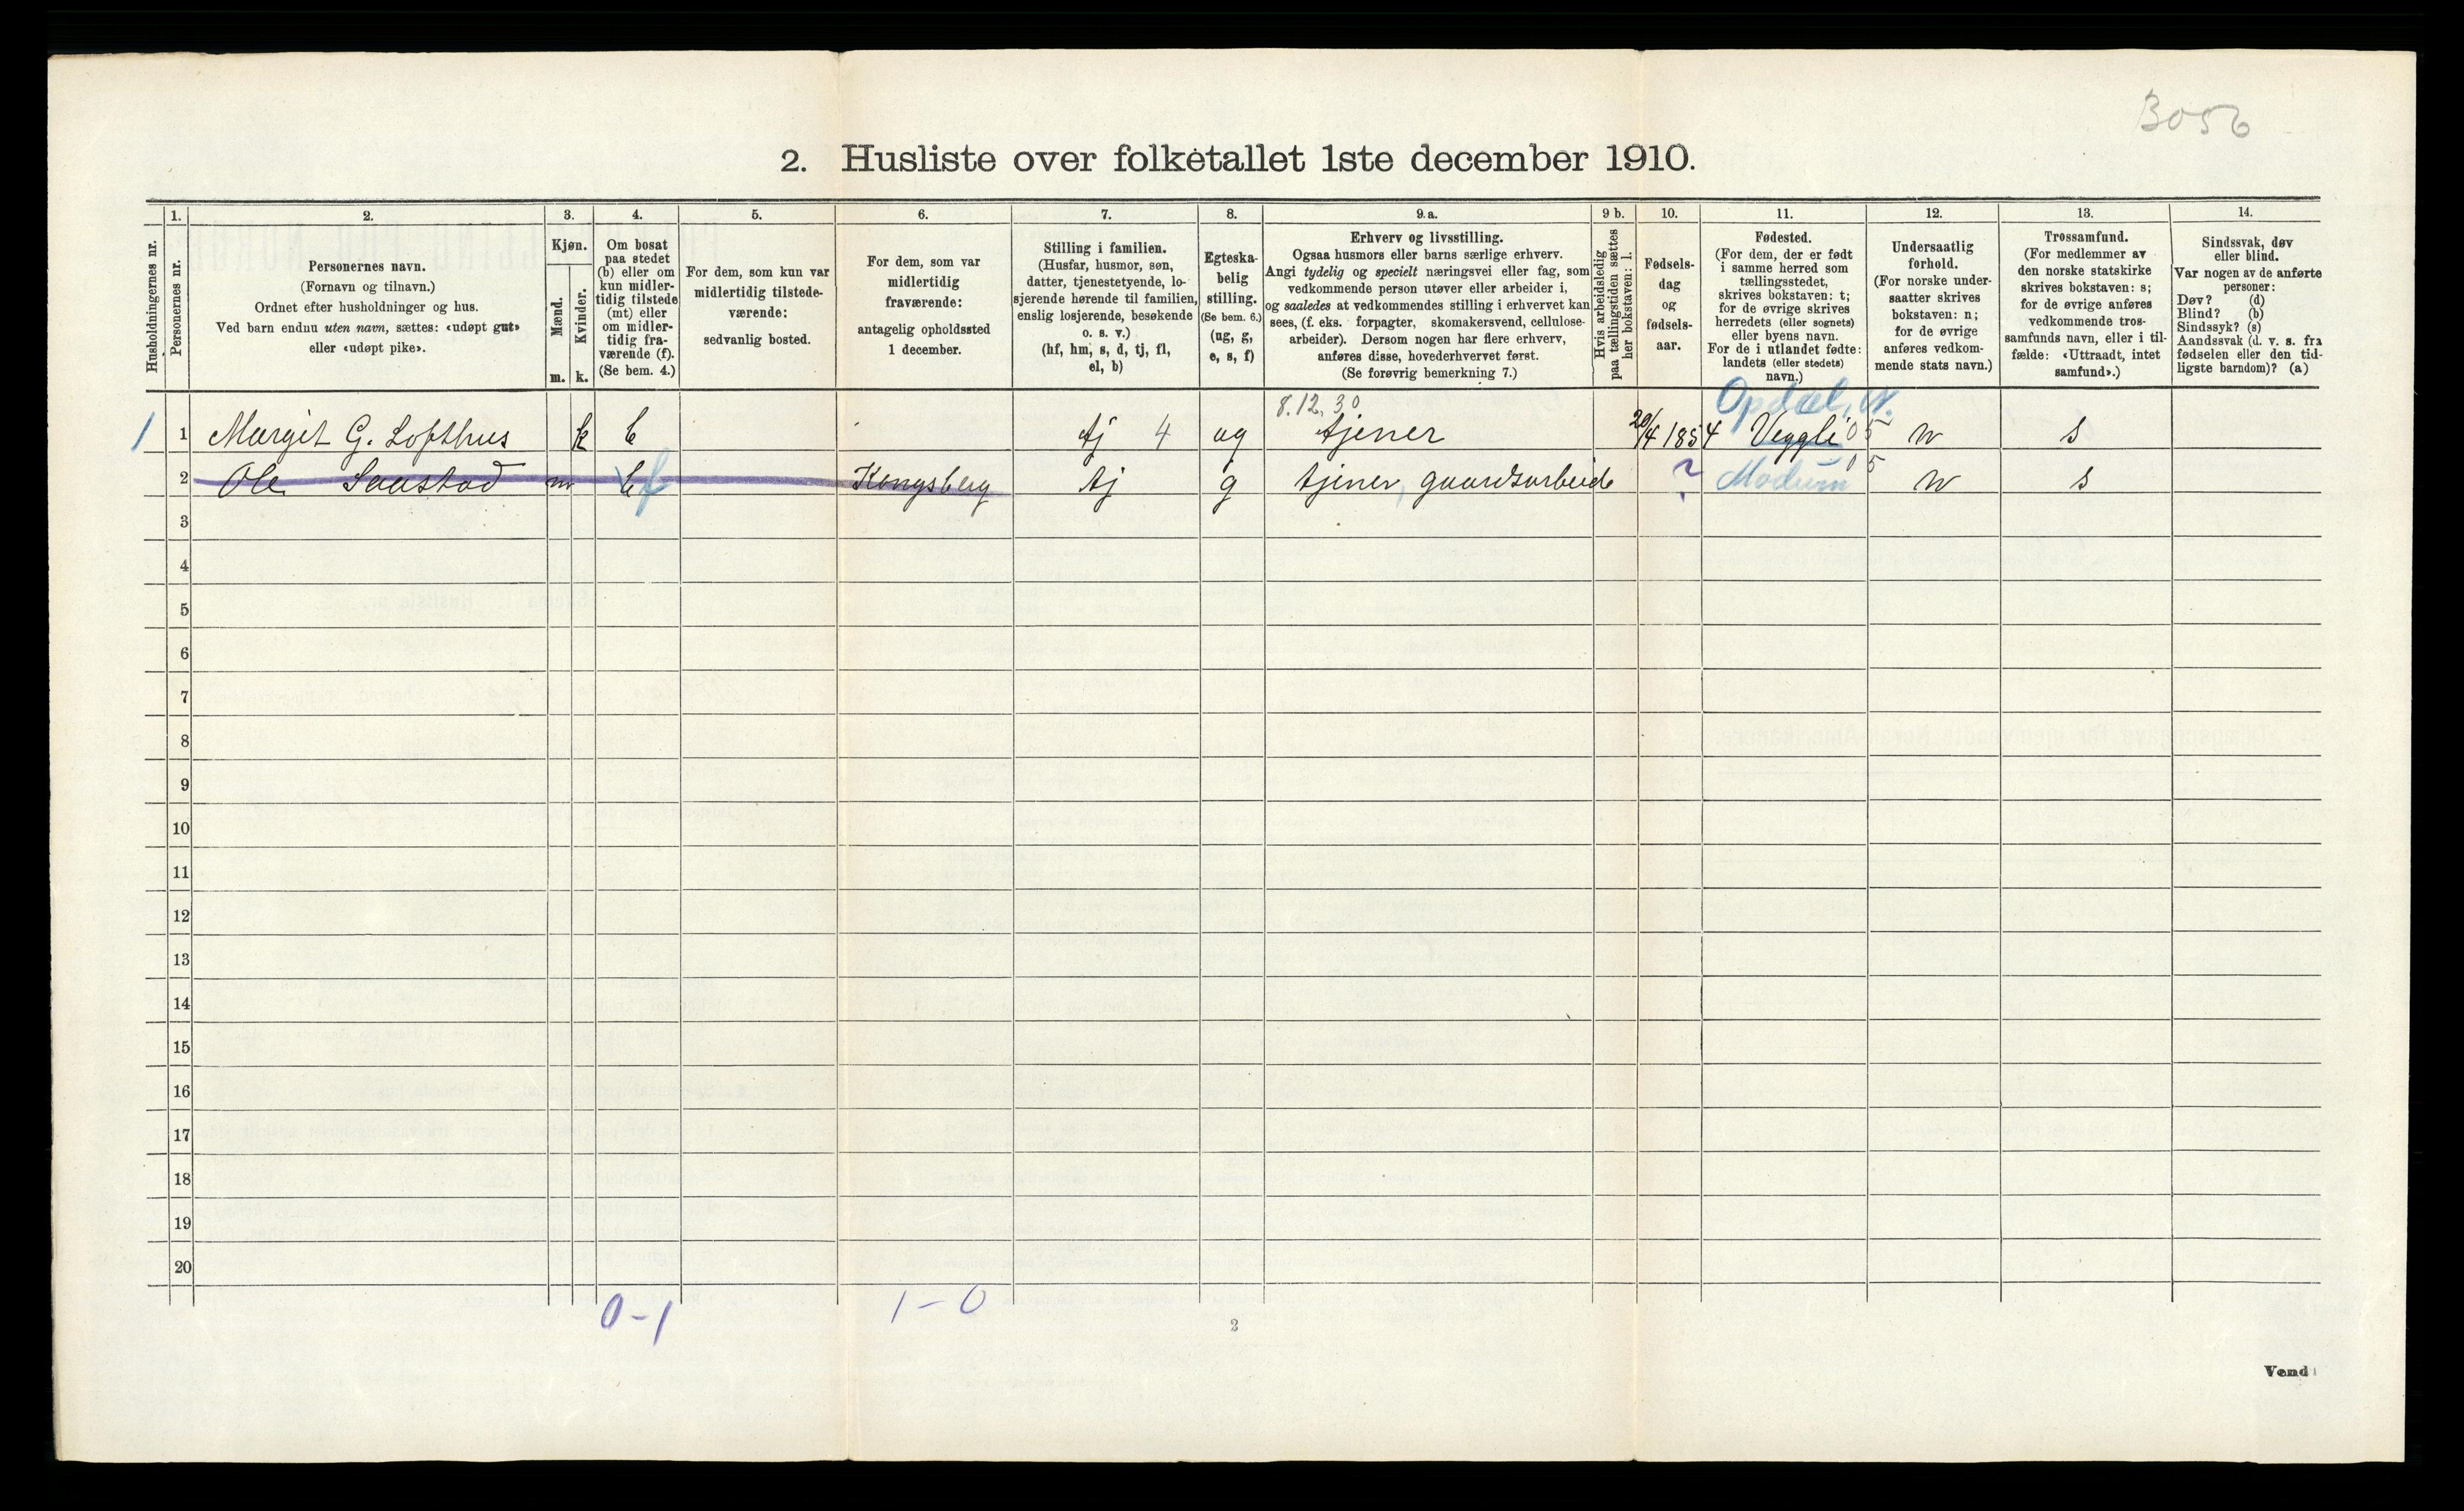 3056
2. Husliste over folketallet 1ste december 1910.
Husholdningernes nr.
1.
Personernes nr.
2.
Personernes navn.
(Fornavn og tilnavn.)
Ordnet efter husholdninger og hus.
Ved barn endnu uten navn, sættes: «udøpt gut»
eller «udøpt pike».
3.
Kjøn.
Mænd.
m.
Kvinder.
k.
4.
Om bosat
paa stedet
(b) eller om
kun midler-
tidig tilstede
(mt) eller
om midler-
tidig fra-
værende (f).
(Se bem. 4.)
5.
For dem, som kun var
midlertidig tilstede-
værende:
sedvanlig bosted.
6.
For dem, som var
midlertidig
fraværende:
antagelig opholdssted
1 december.
7.
Stilling i familien.
(Husfar, husmor, søn,
datter, tjenestetyende, lo-
sjerende hørende til familien,
enslig losjerende, besøkende
o. s. v.)
(hf, hm, s, d, tj, fl,
el, b)
8.
Egteska-
belig
stilling.
(Se bem. 6.)
(ug, g,
e, s, f)
9. a.
Erhverv og livsstilling.
Ogsaa husmors eller barns særlige erhverv.
Angi tydelig og specielt næringsvei eller fag, som
vedkommende person utøver eller arbeider i,
og saaledes at vedkommendes stilling i erhvervet kan
sees, (f. eks. forpagter, skomakersvend, cellulose-
arbeider). Dersom nogen har flere erhverv,
anføres disse, hovederhvervet først.
(Se forøvrig bemerkning 7.)
9 b.
Hvis arbeidsledig
paa tællingstiden sættes
her bokstaven: l.
10.
Fødsels-
dag
og
fødsels-
aar.
11.
Fødested.
(For dem, der er født
i samme herred som
tællingsstedet,
skrives bokstaven: t;
for de øvrige skrives
herredets (eller sognets)
eller byens navn.
For de i utlandet fødte:
landets (eller stedets)
navn.)
12.
Undersaatlig
forhold.
(For norske under-
saatter skrives
bokstaven: n;
for de øvrige
anføres vedkom-
mende stats navn.)
13.
Trossamfund.
(For medlemmer av
den norske statskirke
skrives bokstaven: s;
for de øvrige anføres
vedkommende tros-
samfunds navn, eller i til-
fælde: «Uttraadt, intet
samfund».)
14.
Sindssvak, døv
eller blind.
Var nogen av de anførte
personer:
Døv? (d)
Blind? (b)
Sindssyk? (s)
Aandssvak (d. v. s. fra
fødselen eller den tid-
ligste barndom)? (a)
8.12.30 Opdal, N.
1 1 Margit G. Lofthus k b tj 4 ug tjener 20/4 1854 Veggli 05 n s
2 Ole Saastad m b f Kongsberg tj g tjener, gaardsarbeide ? Modum 05 n s
3
4
5
6
7
8
9
10
11
12
13
14
15
16
17
18
19
20
0-1 1-0
2
Vend